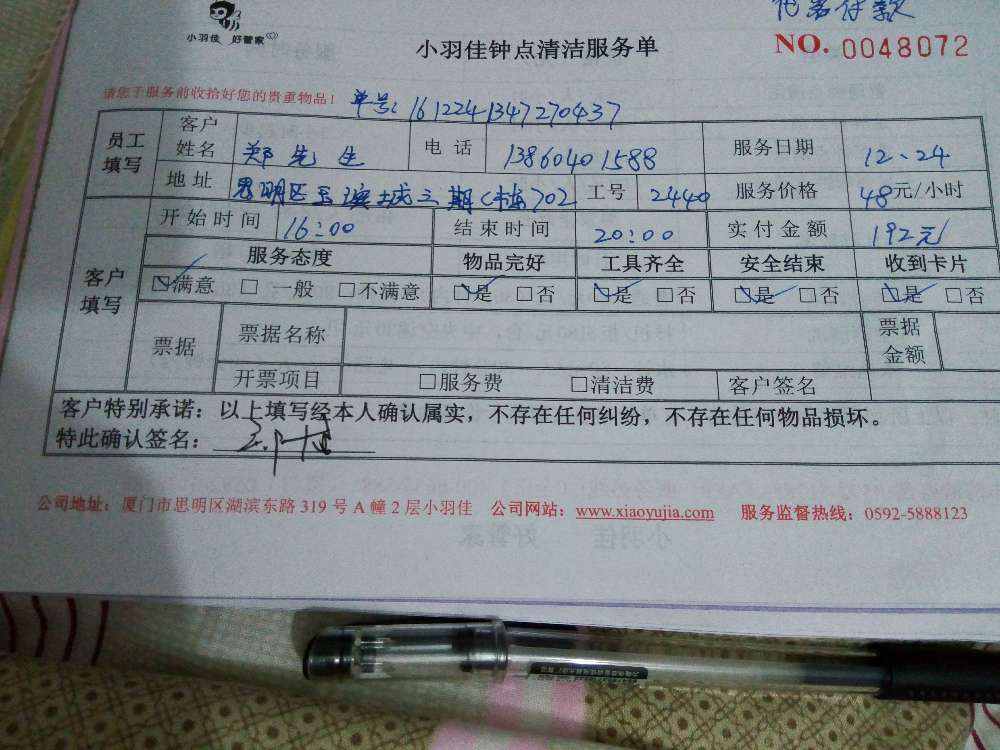 付款
小羽佳 好管家
小羽佳钟点清洁服务单
NO. 0048072
请您于服务前收拾好您的贵重物品！
单号：1612241347270437
员工填写
客户姓名 郑先生 电话 13860401588 服务日期 12、24
地址 思明区 滨城三期 702 工号 2440 服务价格 48元/小时
客户填写
开始时间 16:00 结束时间 20:00 实付金额 192元
服务态度 物品完好 工具齐全 安全结束 收到卡片
☑满意 □一般 □不满意 ☑是 □否 ☑是 □否 ☑是 □否 ☑是 □否
票据 票据名称 票据金额
开票项目 □服务费 □清洁费 客户签名
客户特别承诺：以上填写经本人确认属实，不存在任何纠纷，不存在任何物品损坏。
特此确认签名：
公司地址：厦门市思明区湖滨东路 319 号 A 幢 2 层小羽佳 公司网站：www.xiaoyujia.com 服务监督热线：0592-5888123